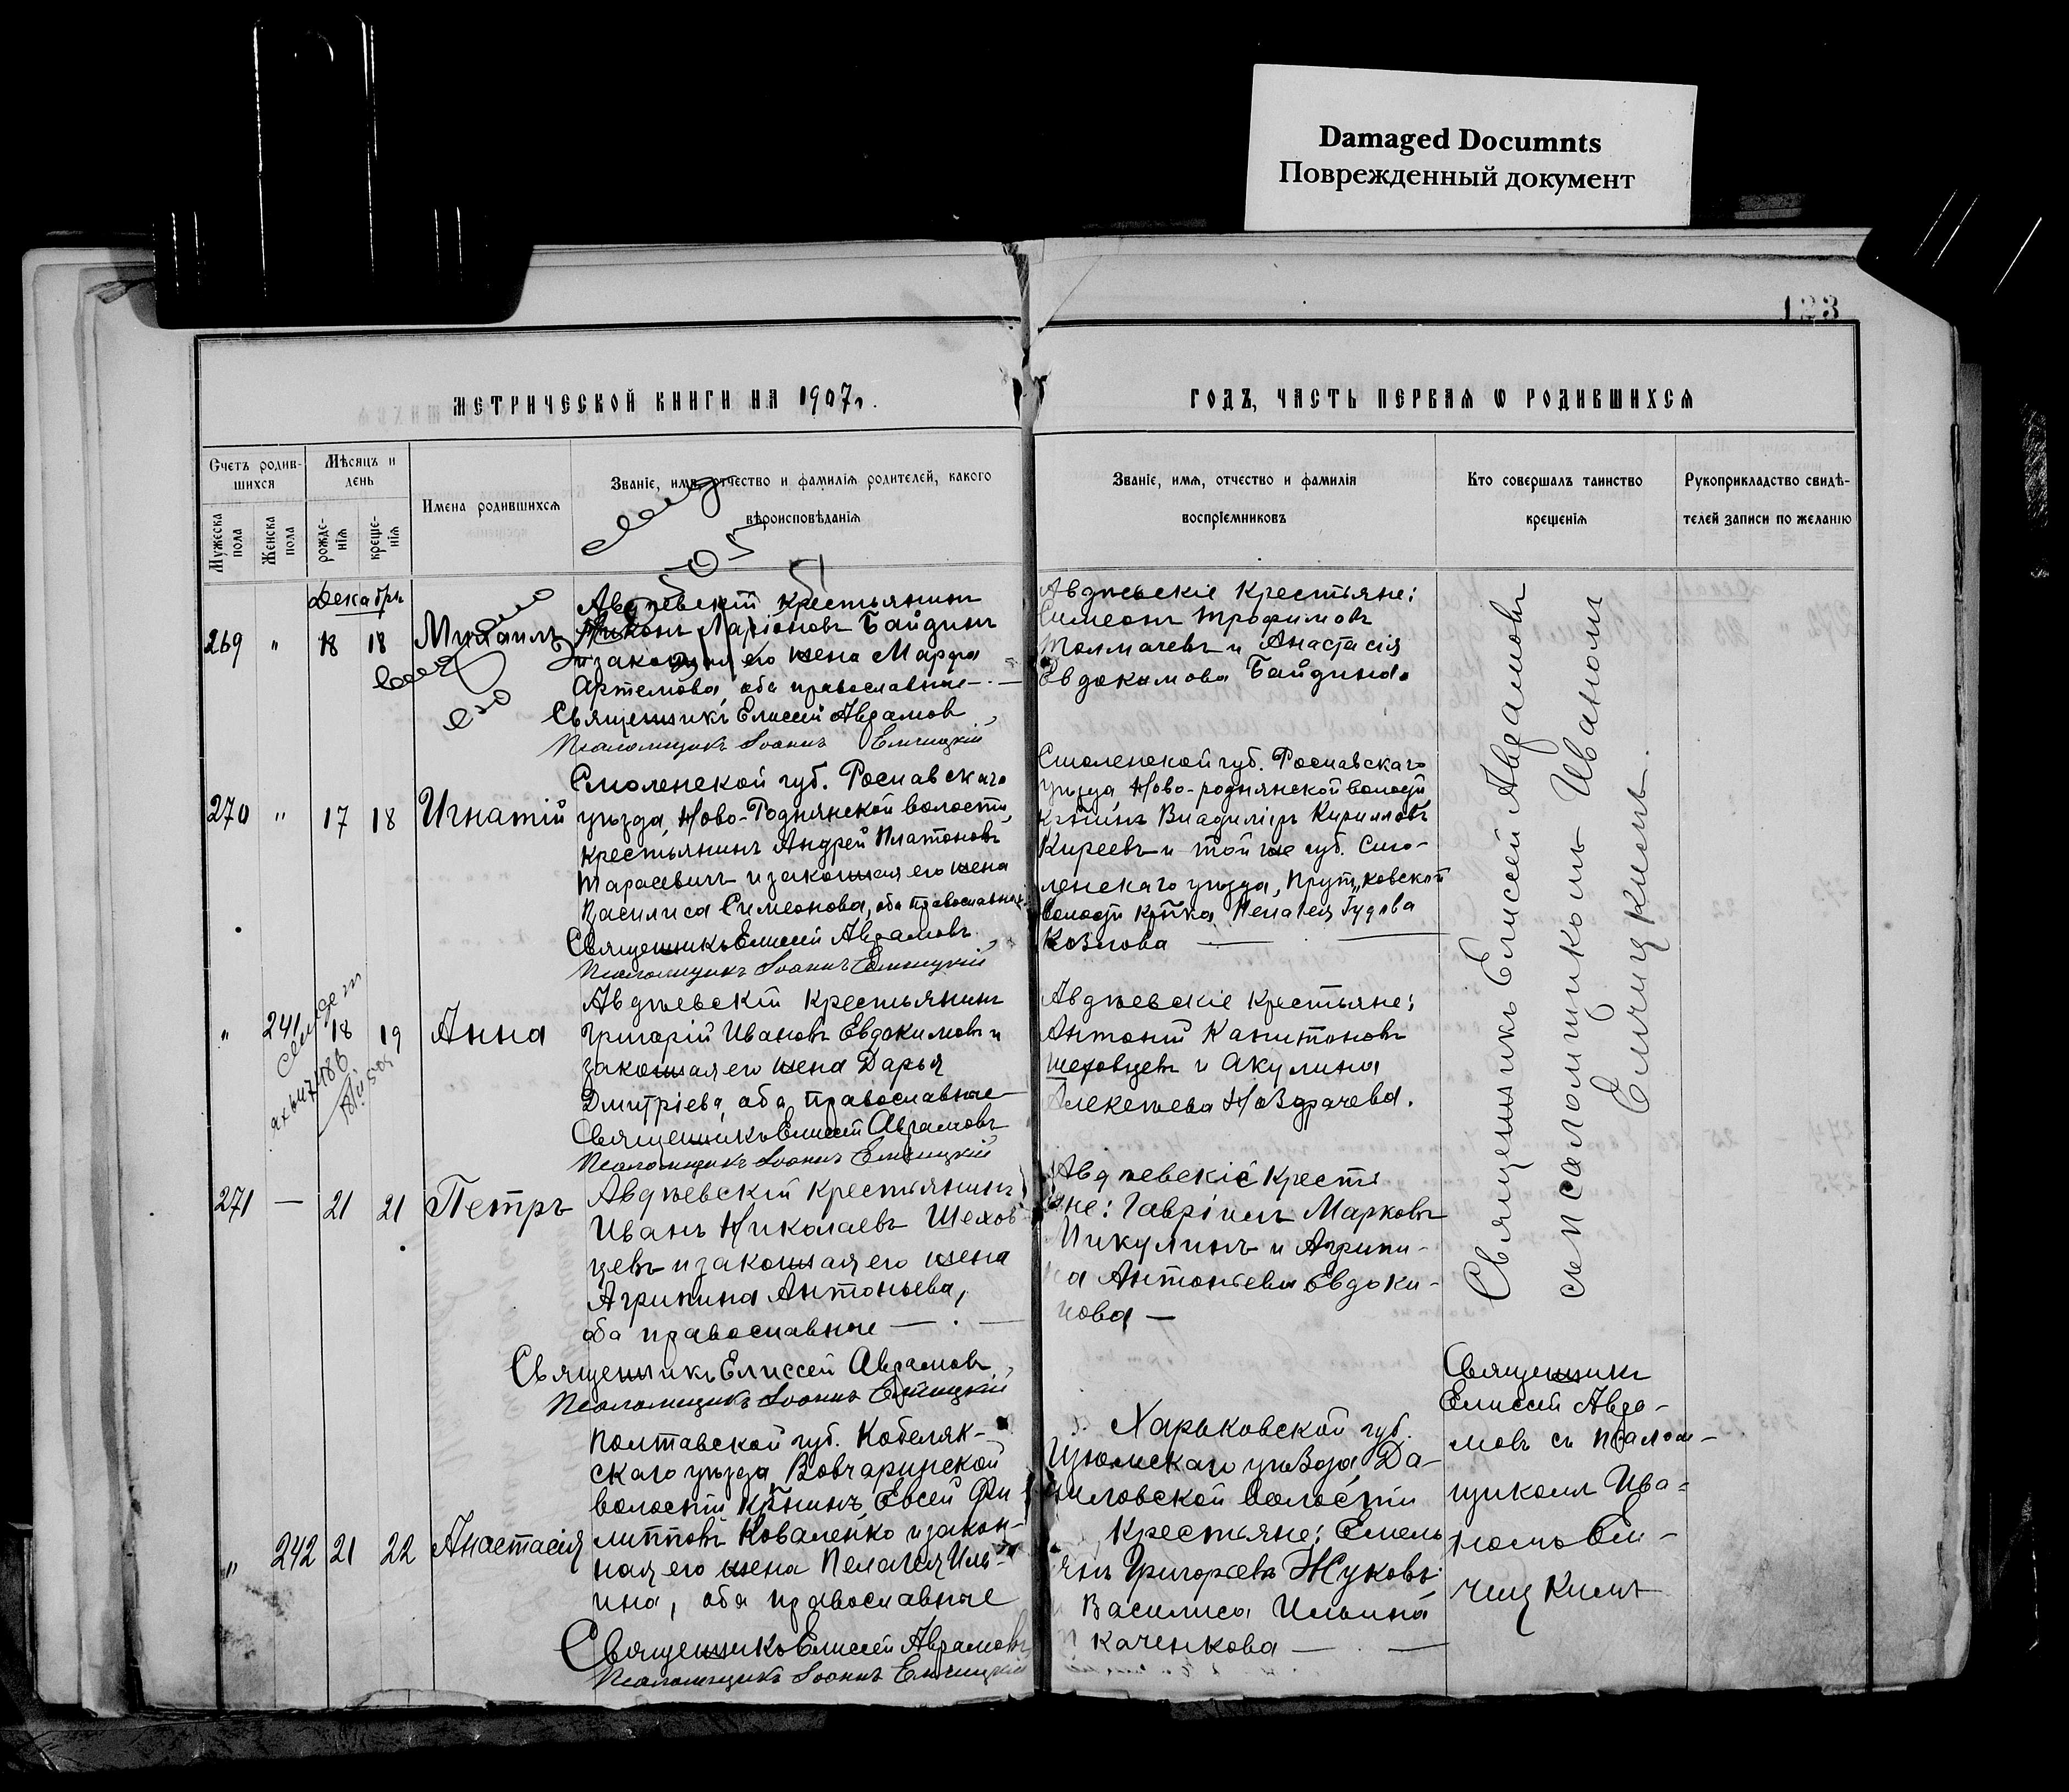 Damaged Documnts
Поврежденный документ
123
МЕТРИЧЕСКОЙ КНИГИ НА 1907г.
ГОДЪ, ЧАСТЬ ПЕРВАЯ Ѡ РОДИВШИХСЯ
Счетъ родив-
шихся
Мужеска
пола
Женска
пола
Мѣсяцъ и
день
рожде-
нія
креще-
нія
Имена родившихся
Званіе, имя, отчество и фамилія родителей, какого
вѣроисповѣданія
Званіе, имя, отчество и фамилія
воспріемниковъ
Кто совершалъ таинство
крещенія
Рукоприкладство свидѣ-
телей записи по желанію
Декабрь
269 " 18 18 Михаилъ
Авдѣевскій крестьянинъ
Ларіоновъ Байдинъ
и законная его жена Марфа
Артемова, оба православные
Священникъ Елисей Аврамовъ
Псаломщикъ Іоаннъ Елчицкій
Авдѣевскіе Крестьяне:
Симеонъ Трофимовъ
Толмачевъ и Анастасія
Евдокимова Байдина.
270 " 17 18 Игнатій
Смоленской губ. Рославскаго
уѣзда, Ново-Роднянской волости,
крестьянинъ Андрей Платоновъ
Тарасевичъ и законная его жена
Василиса Симеонова, оба православные
Священникъ Елисей Аврамовъ
Псаломщикъ Іоаннъ Елчицкій
Смоленской губ. Рославскаго
уѣзда, Ново-роднянской волости
кр-нинъ Владиміръ Кирилловъ
Киреевъ и той же губ. Смо-
ленскаго уѣзда, Прутковской
волости кр-нка Пелагея
Козлова
" 241 18 19 Анна
Авдѣевскій крестьянинъ
Григорій Ивановъ Евдокимовъ и
законная его жена Дарья
Дмитріева, оба православные
Священникъ Елисей Аврамовъ
Псаломщикъ Іоаннъ Елчицкій
Авдѣевскіе крестьяне:
Антоній Капитоновъ
Шеховцевъ и Акулина
Алексѣева Ноздрачева.
271 — 21 21 Петръ
Авдѣевскій крестьянинъ
Иванъ Николаевъ Шехов
цевъ и законная его жена
Агрипина Антоньева,
оба православные
Священникъ Елиссей Аврамовъ
Псаломщикъ Іоаннъ Елчицкій
Авдѣевскіе Кресть
яне: Гавріилъ Марковъ
Пикулинъ и Агрипи-
на Антоньева Евдоки-
мова —
Священникъ Елисей Аврамовъ
съ псаломщикомъ Иваномъ
Елчицкимъ.
" 242 21 22 Анастасія
Полтавской губ. Кобеляк-
скаго уѣзда, Бовчаринской
волости кр-нинъ Евсей Фи
липповъ Коваленко и закон-
ная его жена Пелагея Иль-
ина, оба православные
Священникъ Елисей Аврамовъ
Псаломщикъ Іоаннъ Елчицкій
Харьковской губ.
Изюмскаго уѣзда, Да-
ниловской волости
Крестьяне: Емель
янъ Григорьевъ Жуковъ
Василиса Ильина
Каченкова
Священникъ
Елисей Авра-
мовъ съ псалом-
щикомъ Ива-
номъ Ел-
чицкимъ